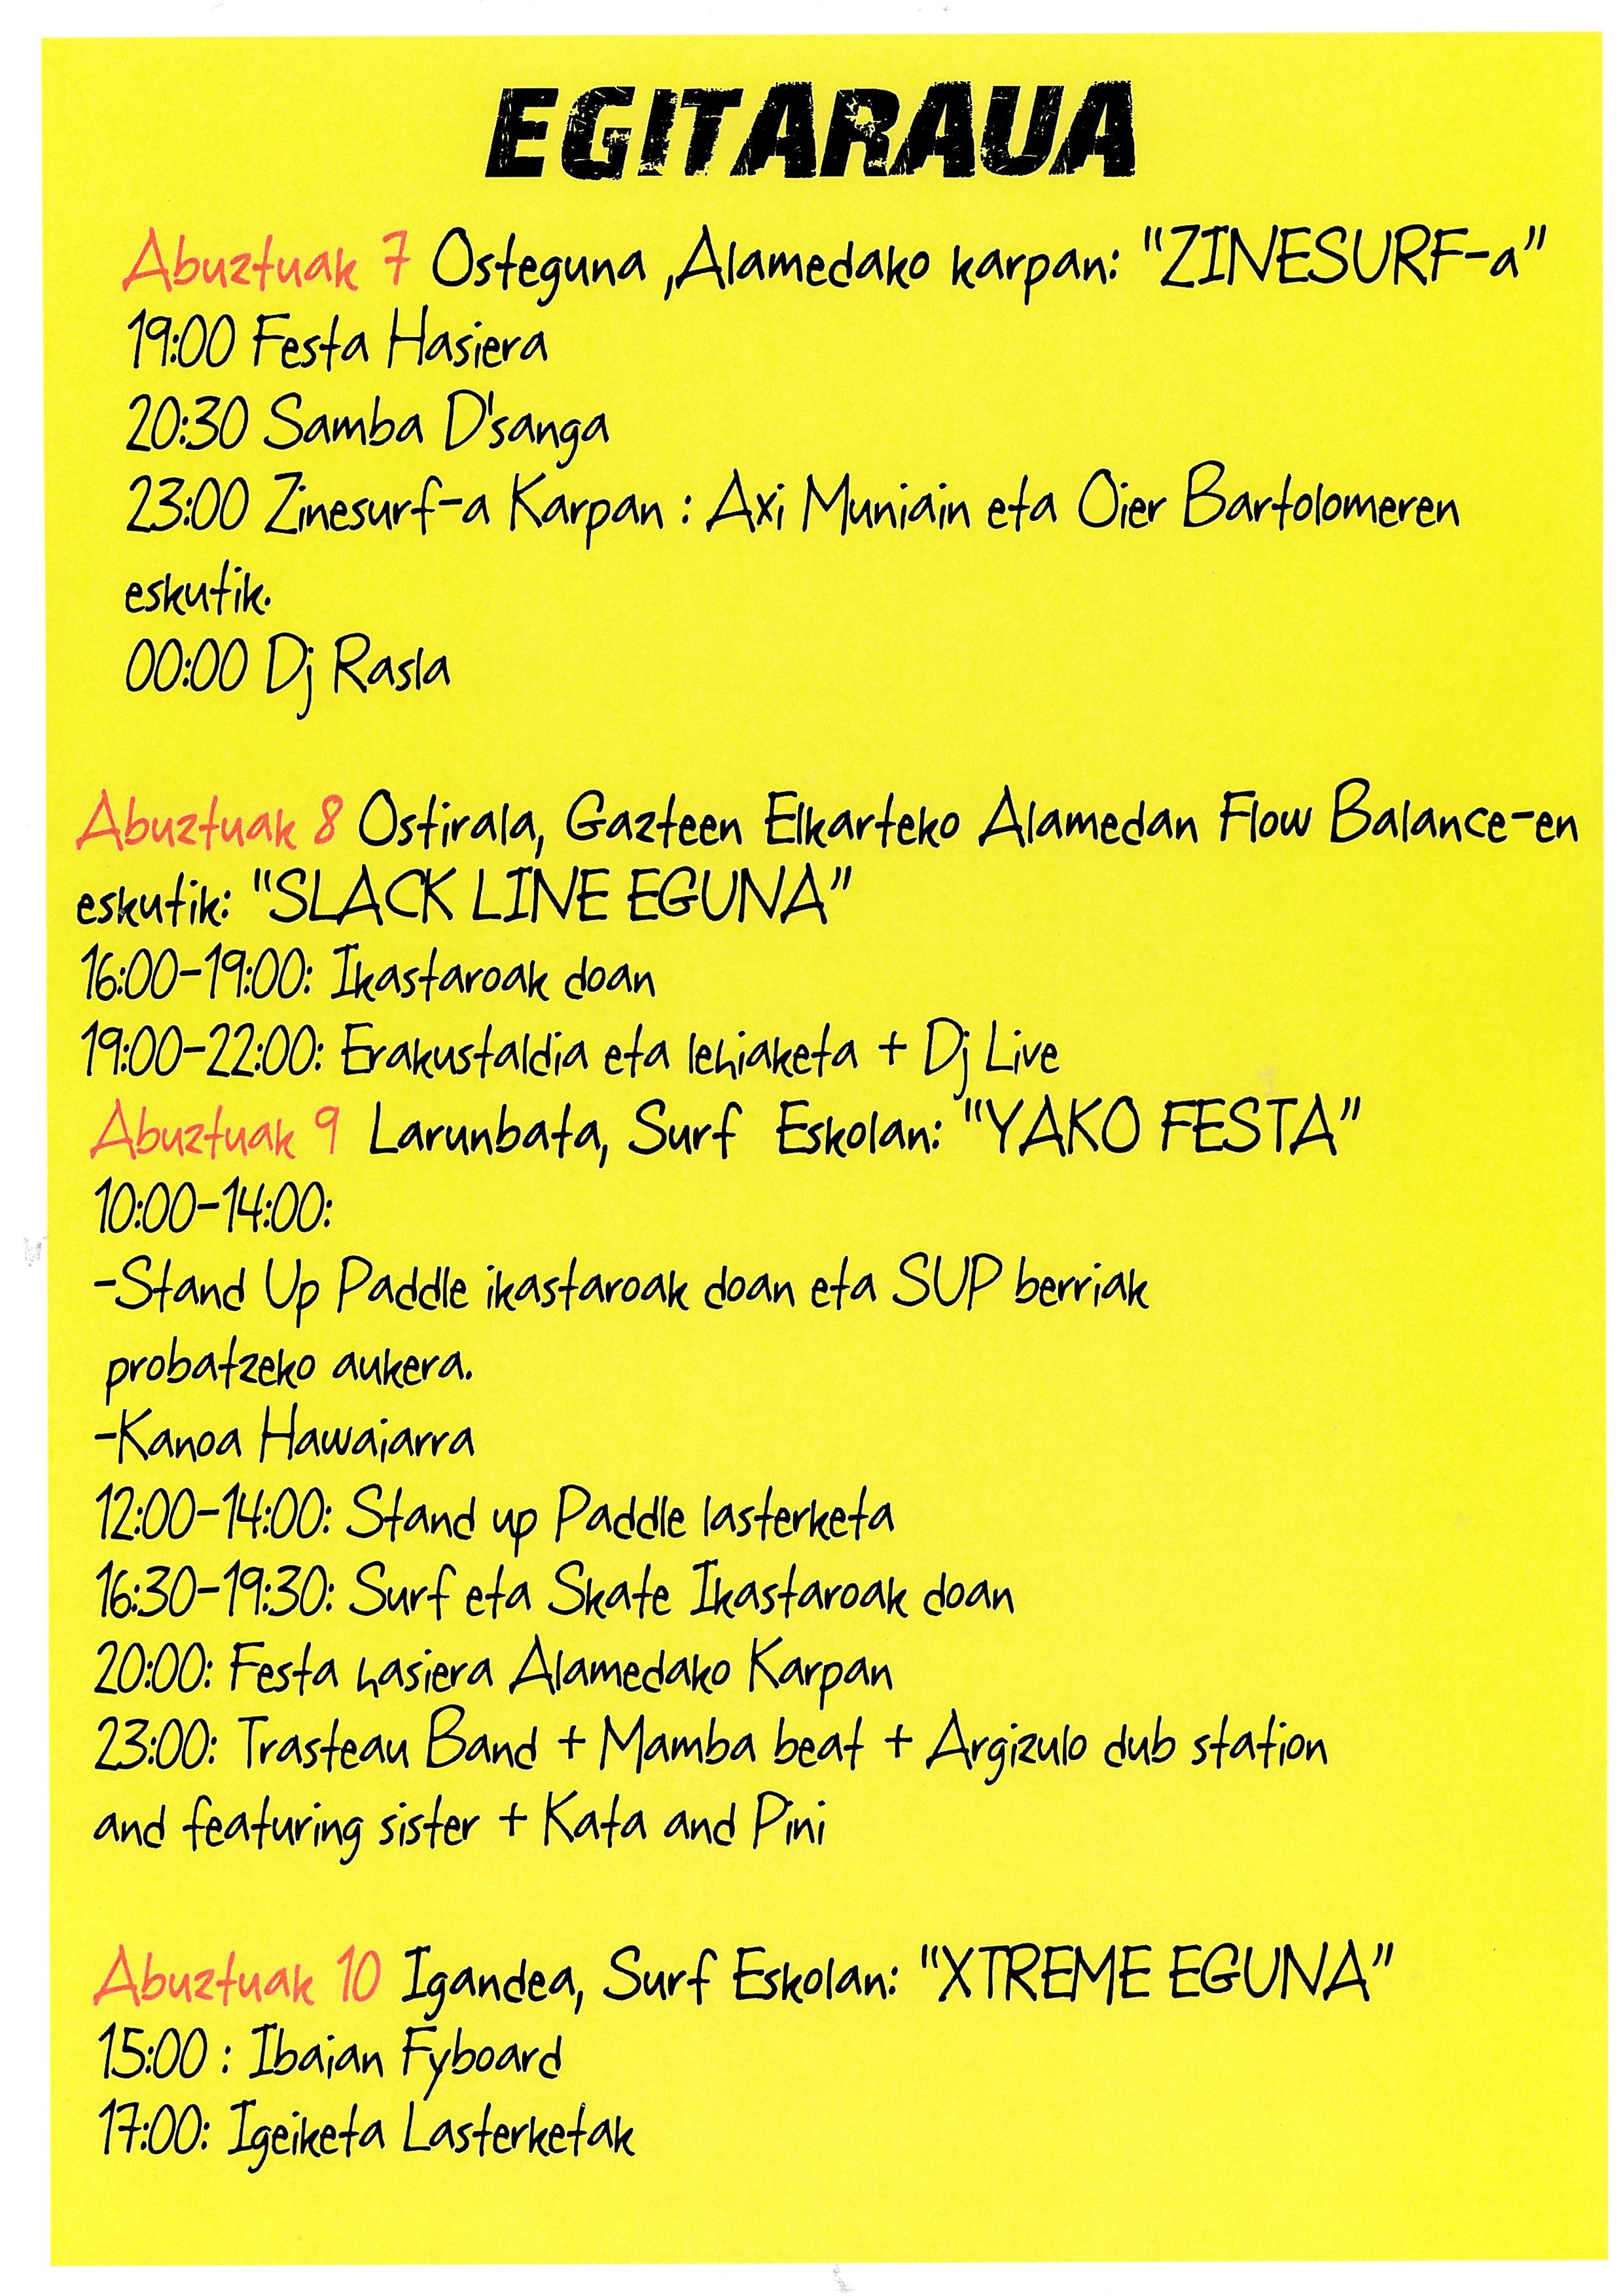 EGITARAUA
Abuztuak 7 Osteguna ,Alamedako karpan: "ZINESURF-a"
19:00 Festa Hasiera
20:30 Samba D'sanga
23:00 Zinesurf-a Karpan : Axi Muniain eta Oier Bartolomeren
eskutik.
00:00 Dj Rasla
Abuztuak 8 Ostirala, Gazteen Elkarteko Alamedan Flow Balance-en
eskutik: "SLACK LINE EGUNA"
16:00-19:00: Ikastaroak doan
19:00-22:00: Erakustaldia eta lehiaketa + Dj Live
Abuztuak 9 Larunbata, Surf Eskolan: "YAKO FESTA"
10:00-14:00:
-Stand Up Paddle ikastaroak doan eta SUP berriak
probatzeko aukera.
-Kanoa Hawaiarra
12:00-14:00: Stand up Paddle lasterketa
16:30-19:30: Surf eta Skate Ikastaroak doan
20:00: Festa hasiera Alamedako Karpan
23:00: Trasteau Band + Mamba beat + Argizulo dub station
and featuring sister + Kata and Pini
Abuztuak 10 Igandea, Surf Eskolan: "XTREME EGUNA"
15:00 : Ibaian Fyboard
17:00: Igeiketa Lasterketak